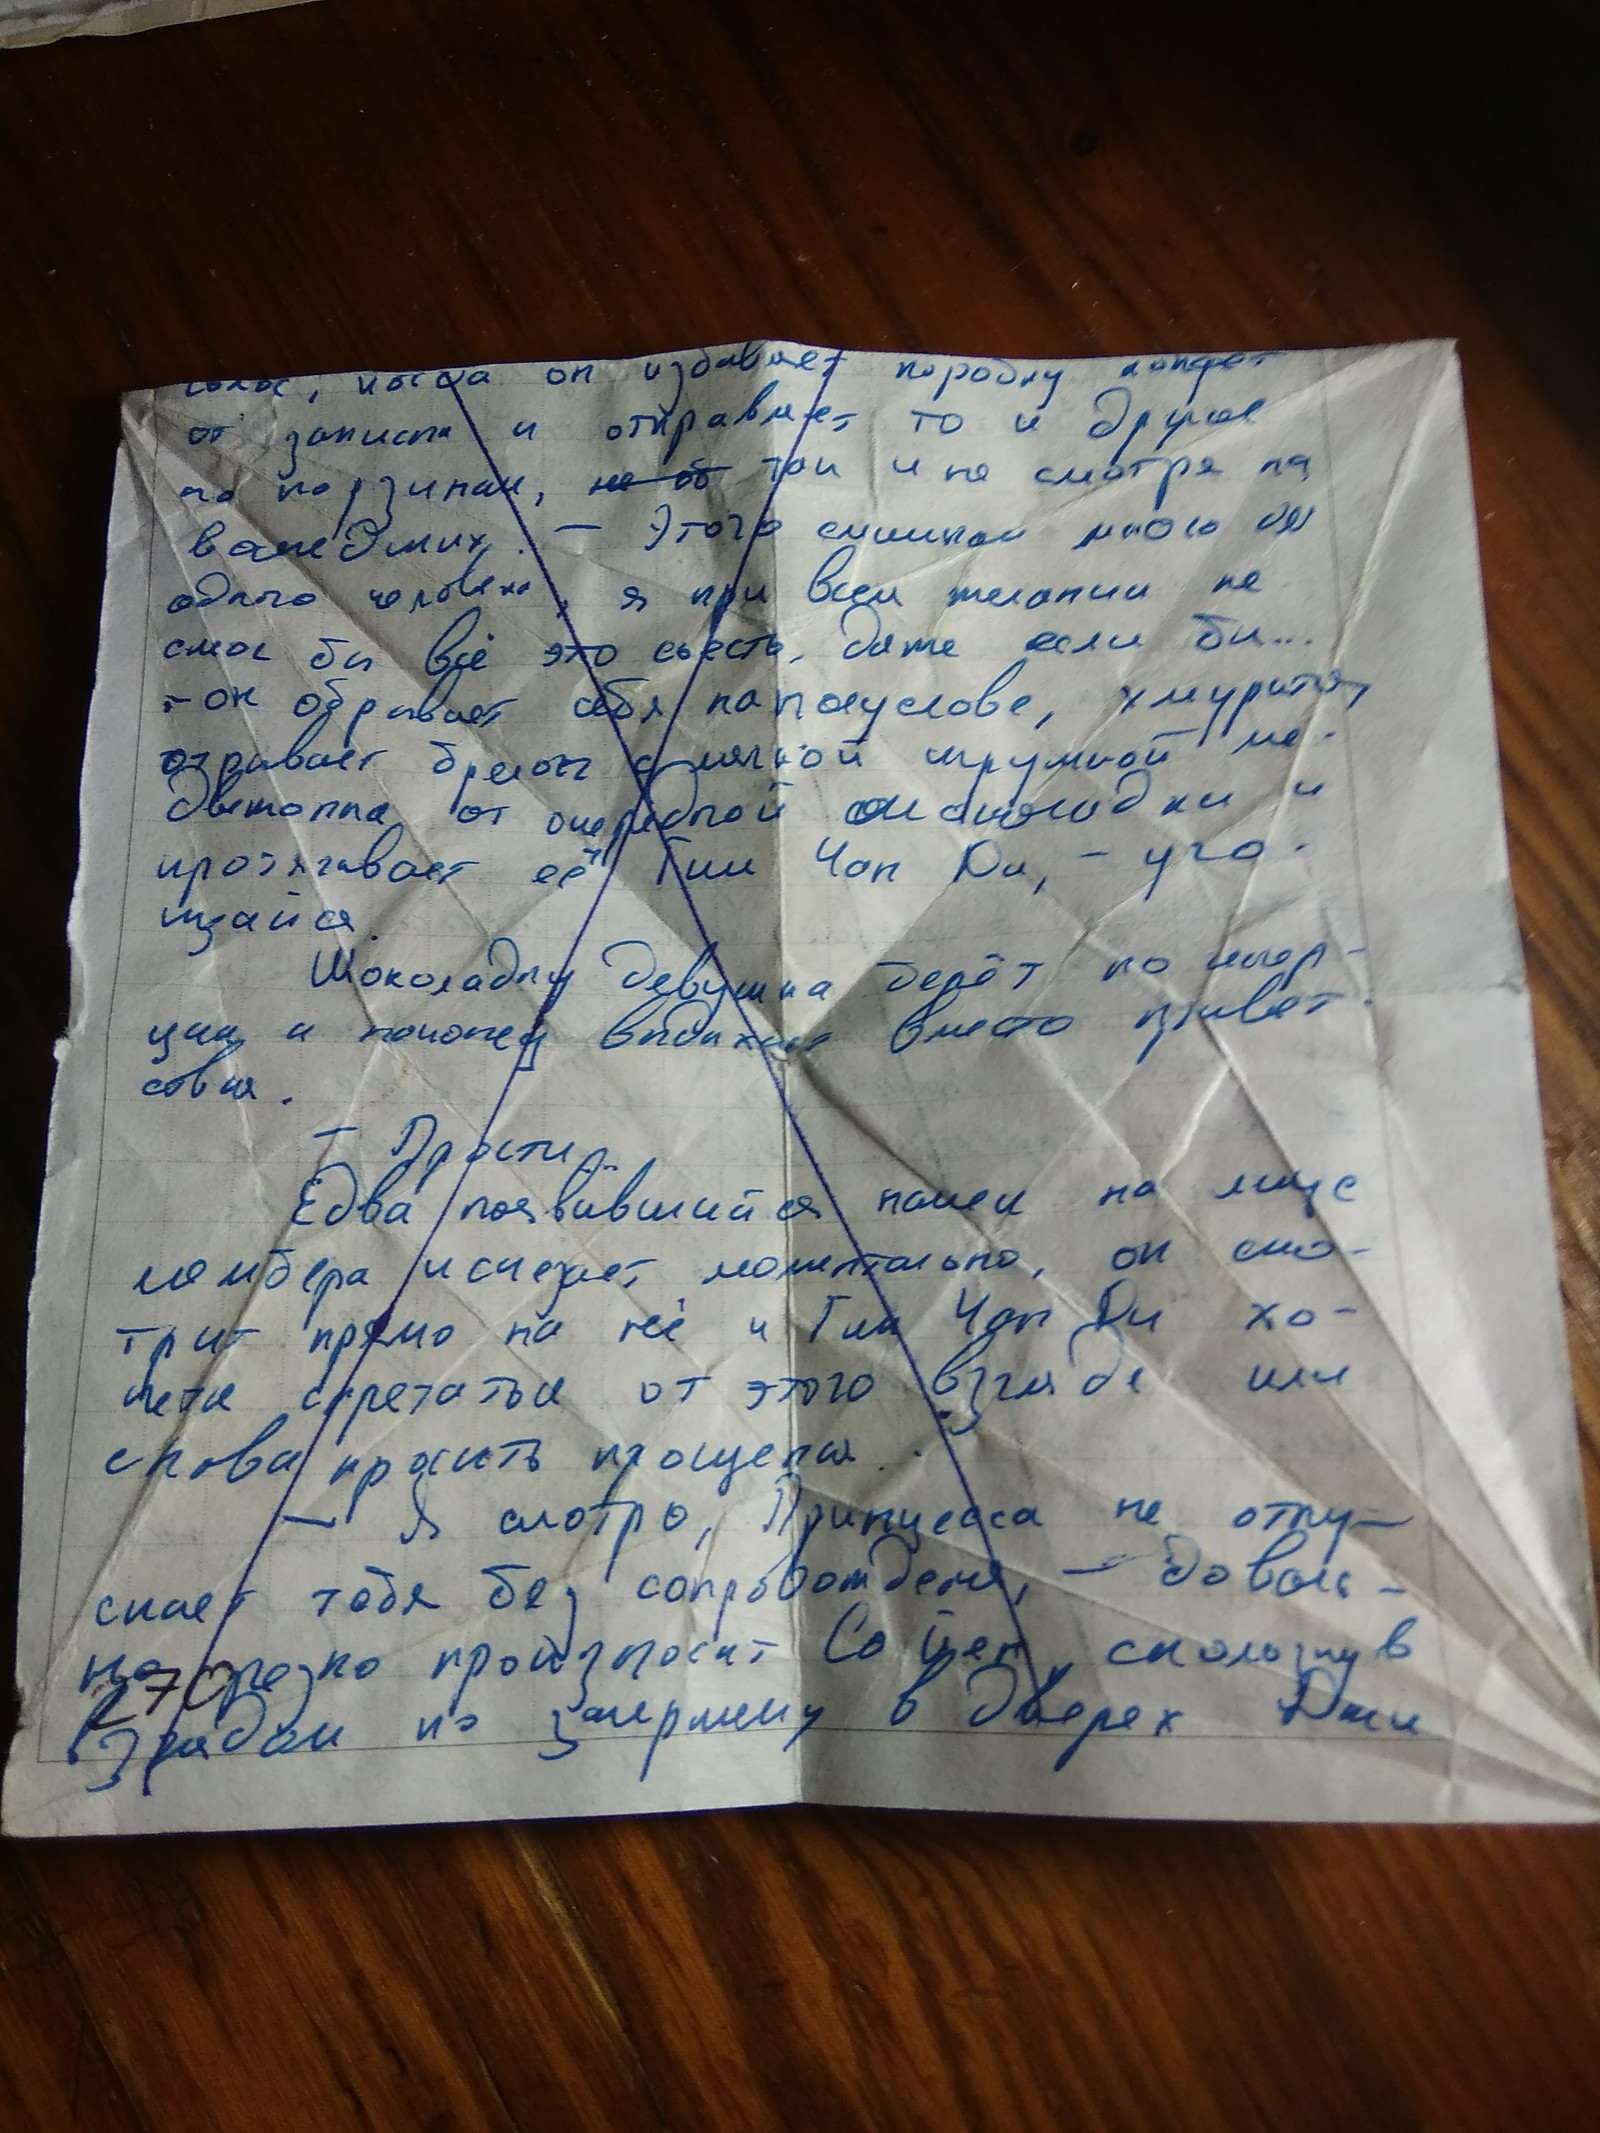 голос, когда он избавляет коробку конфет
от записки и отправляет то и другое
по корзинам, не об так и не смотря на
вошедших. – Этого слишком много для
одного человека, я при всём желании не
смог бы всё это съесть, даже если бы...
– он обрывает себя на полуслове, хмурится,
отрывает брелок с мягкой игрушкой ме-
двежонка от очередной шоколадки и
протягивает её Гим Чан Ди, – уго-
щайся.
Шоколадку девушка берёт по инер-
ции и наконец выдыхает вместо приветст-
овия.
– Прости...
Едва появившийся намек на лице
мембера исчезает моментально, он смо-
трит прямо на неё и Гим Чан Ди хо-
чется спрятаться от этого взгляда или
снова просить прощения.
– Я смотрю, Принцесса не отпу-
скает тебя без сопровождения, – доволь-
но резко произносит Со Йен, скользнув
270
взглядом по замершему в дверях Джи